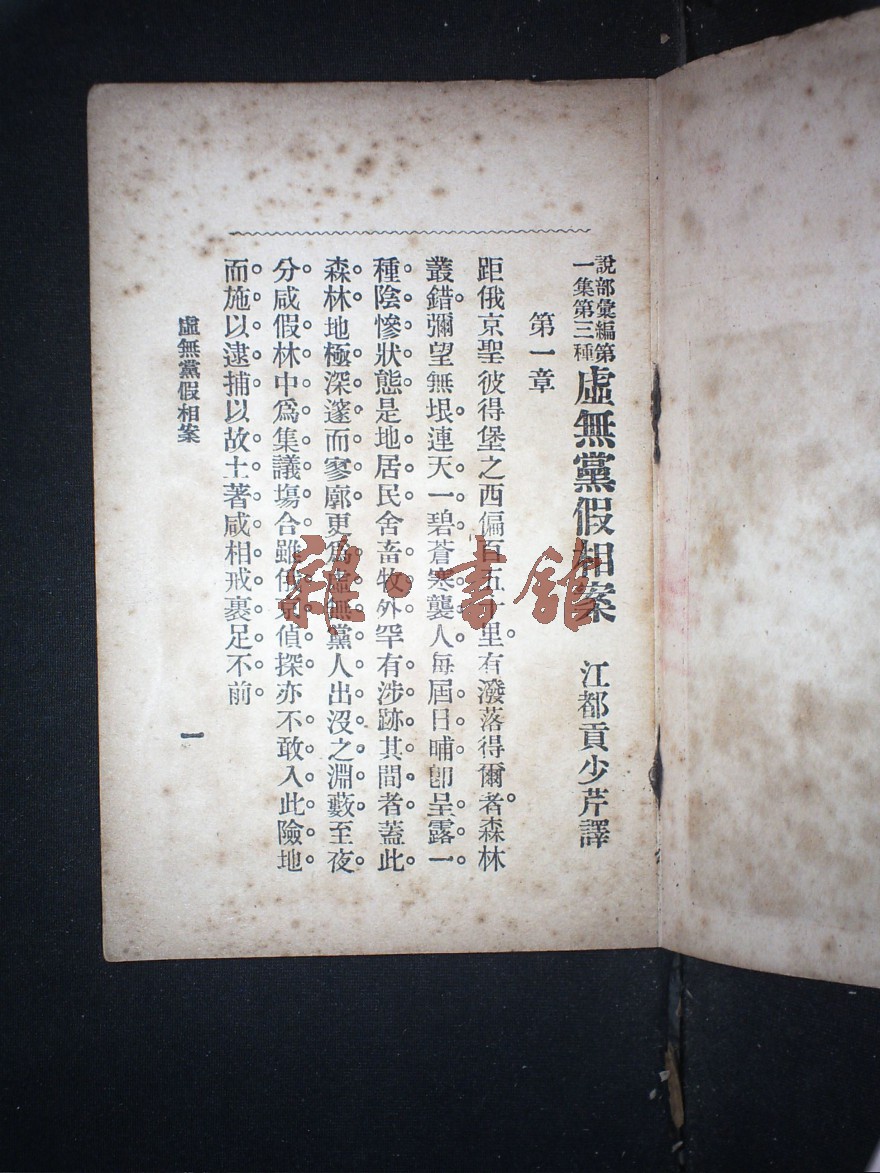 說部彙編第
一集第三種
虛無黨假相案 江都貢少芹譯
第一章
距俄京聖彼得堡之西偏百五十里。有潑落得爾者。森林
叢錯。彌望無垠。連天一碧。蒼寒襲人。每屆日晡。卽呈露一
種陰慘狀態。是地居民。舍畜牧外。罕有涉跡其間者。蓋此
森林地極深邃而寥廓。更爲虛無黨人出沒之淵藪。至夜
分。咸假林中爲集議塲合。雖俄京偵探。亦不敢入此險地。
而施以逮捕。以故土著咸相戒裹足不前。
虛無黨假相案
一
雜·書館